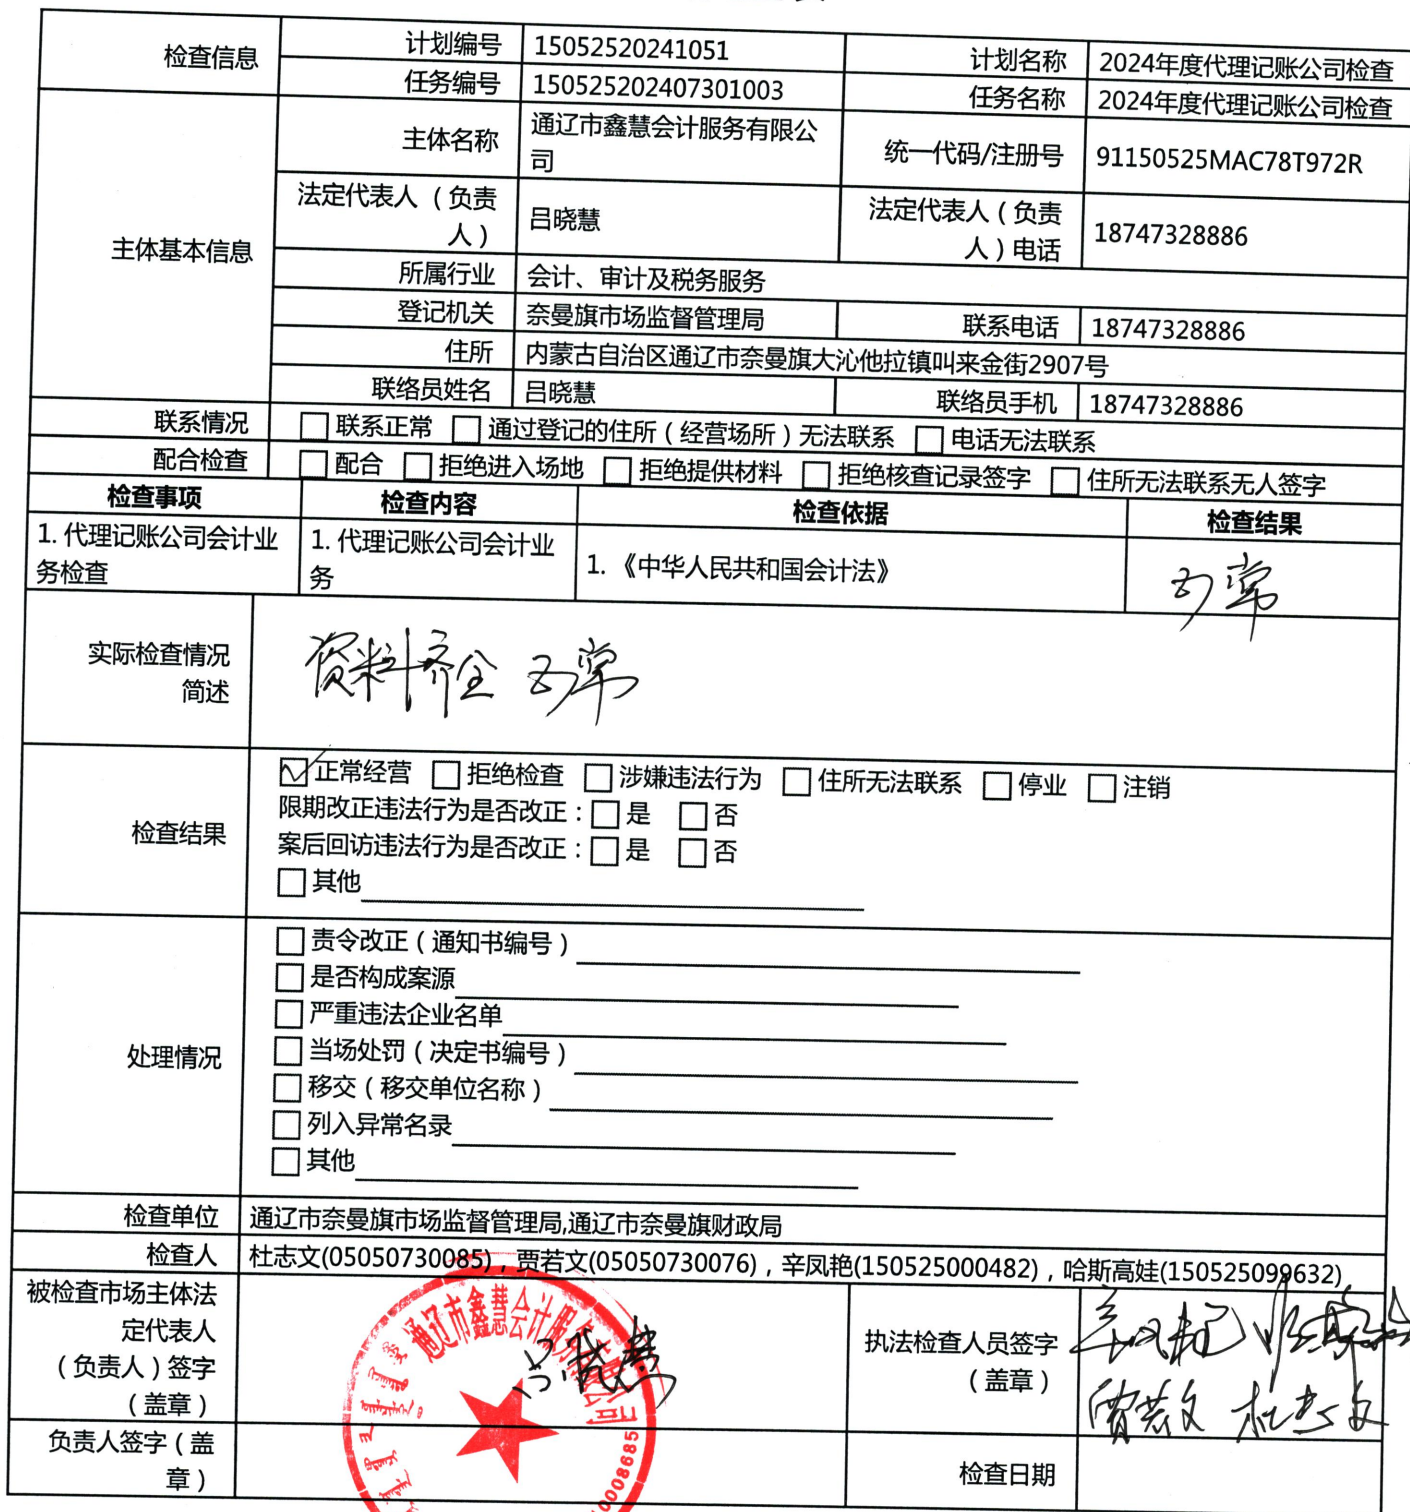 检查信息 计划编号 15052520241051 计划名称 2024年度代理记账公司检查
任务编号 150525202407301003 任务名称 2024年度代理记账公司检查
主体基本信息 主体名称 通辽市鑫慧会计服务有限公
司 统一代码/注册号 91150525MAC78T972R
法定代表人（负责
人） 吕晓慧 法定代表人（负责
人）电话 18747328886
所属行业 会计、审计及税务服务
登记机关 奈曼旗市场监督管理局 联系电话 18747328886
住所 内蒙古自治区通辽市奈曼旗大沁他拉镇叫来金街2907号
联络员姓名 吕晓慧 联络员手机 18747328886
联系情况 □ 联系正常 □ 通过登记的住所（经营场所）无法联系 □ 电话无法联系
配合检查 □ 配合 □ 拒绝进入场地 □ 拒绝提供材料 □ 拒绝核查记录签字 □ 住所无法联系无人签字
检查事项 检查内容 检查依据 检查结果
1. 代理记账公司会计业
务检查 1. 代理记账公司会计业
务 1. 《中华人民共和国会计法》 正常
实际检查情况
简述 资料齐全 正常
检查结果 ☑ 正常经营 □ 拒绝检查 □ 涉嫌违法行为 □ 住所无法联系 □ 停业 □ 注销
限期改正违法行为是否改正：□ 是 □ 否
案后回访违法行为是否改正：□ 是 □ 否
□ 其他
处理情况 □ 责令改正（通知书编号）
□ 是否构成案源
□ 严重违法企业名单
□ 当场处罚（决定书编号）
□ 移交（移交单位名称）
□ 列入异常名录
□ 其他
检查单位 通辽市奈曼旗市场监督管理局,通辽市奈曼旗财政局
检查人 杜志文(05050730085)，贾若文(05050730076)，辛凤艳(150525000482)，哈斯高娃(150525099632)
被检查市场主体法
定代表人
（负责人）签字
（盖章） 通辽市鑫慧会计服务有限公司 吕晓慧 执法检查人员签字
（盖章） 辛凤艳
贾若文 杜志文
负责人签字（盖
章） 检查日期